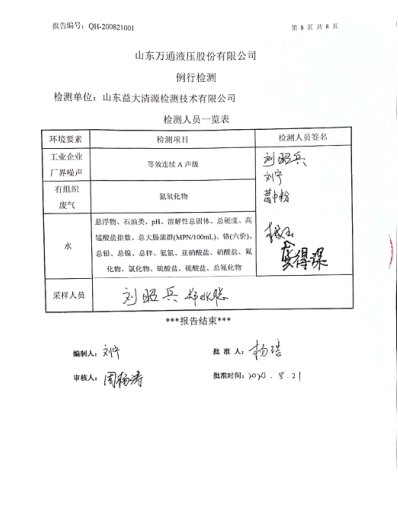 报告编号：QH-200821001 第 8 页 共 8 页
山东万通液压股份有限公司
例行检测
检测单位：山东益大清源检测技术有限公司
检测人员一览表
环境要素 检测项目 检测人员签名
工业企业
厂界噪声
等效连续 A 声级
刘昭兵
刘宁
有组织
废气
氮氧化物
水
悬浮物、石油类、pH、溶解性总固体、总硬度、高
锰酸盐指数、总大肠菌群(MPN/100mL)、铬(六价)、
总铅、总镍、总锌、氨氮、亚硝酸盐、硝酸盐、氟
化物、氯化物、硫酸盐、硫酸盐、总氰化物
采样人员 刘昭兵
***报告结束***
编制人：刘宁 批 准 人：杨浩
审核人： 批准时间：2020.8.21